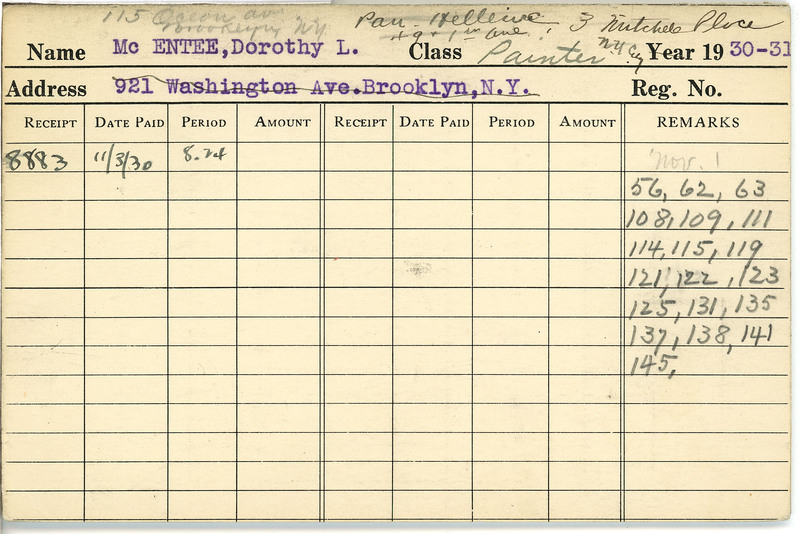 115 Ocean av
Brooklyn NY.
Pan. Hellenic 3 Mitchell Place
49 & 1st ave. N.Y. Cy
Name Mc ENTEE,Dorothy L. Class Painter Year 1930-31
Address 921 Washington Ave.Brooklyn,N.Y. Reg. No.
RECEIPT DATE PAID PERIOD AMOUNT RECEIPT DATE PAID PERIOD AMOUNT REMARKS
8883 11/3/30 8.24 Nov. 1
56, 62, 63
108, 109, 111
114, 115, 119
121, 122, 123
125, 131, 135
137, 138, 141
145,